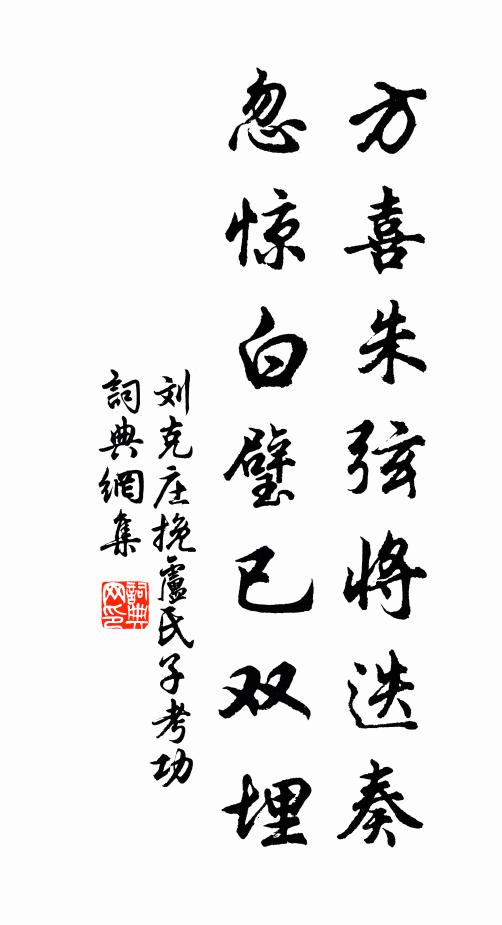 方喜朱弦将迭奏
忽惊白璧已双埋
刘克庄挽盧氏子考功
詞典網集
詞典网印